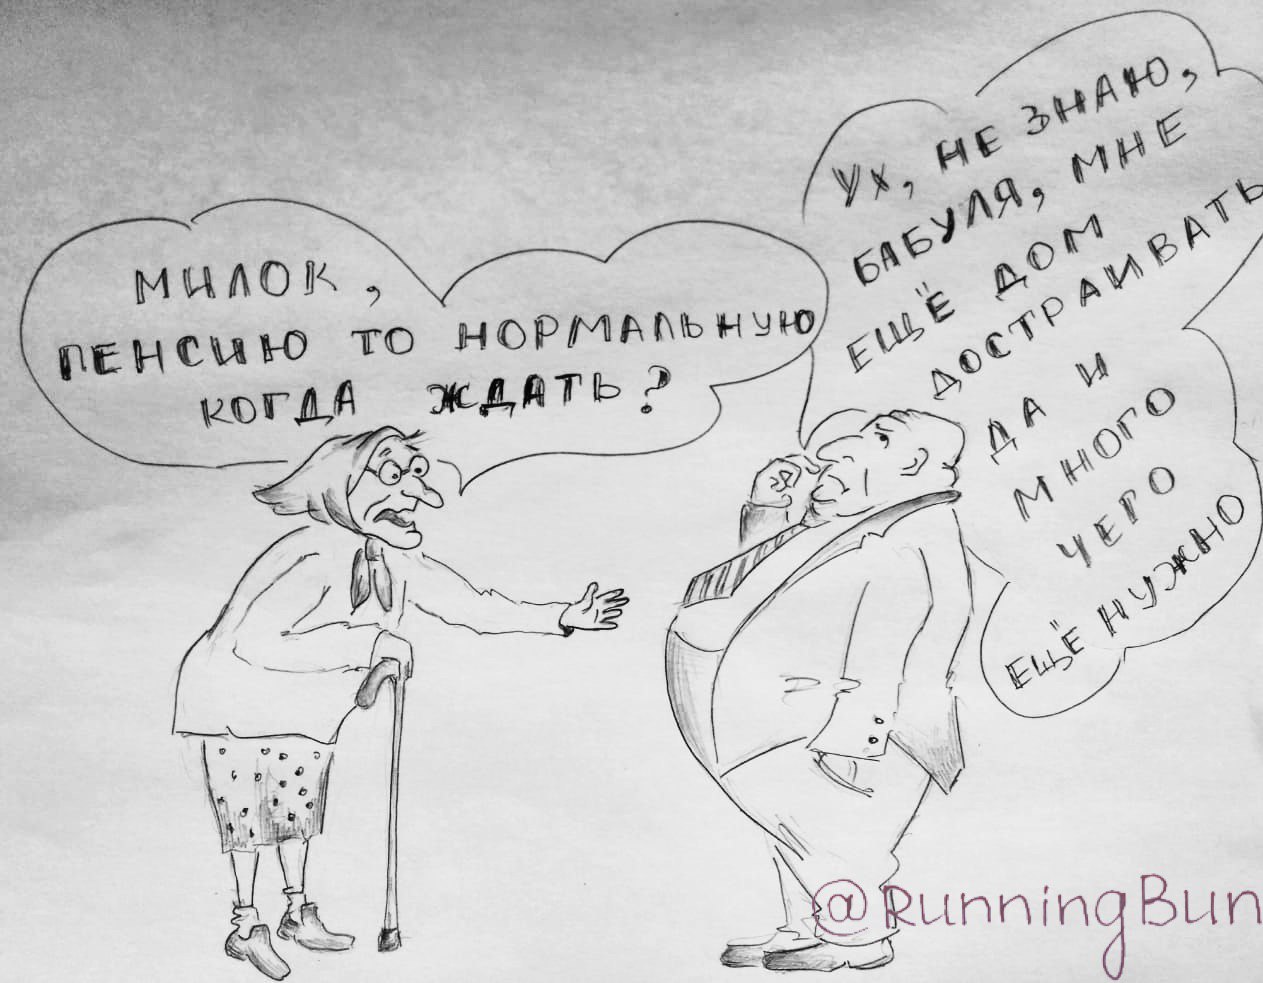 МИЛОК,
ПЕНСИЮ ТО НОРМАЛЬНУЮ
КОГДА ЖДАТЬ?
УХ, НЕ ЗНАЮ,
БАБУЛЯ, МНЕ
ЕЩЁ ДОМ
ДОСТРАИВАТЬ
ДА И
МНОГО
ЧЕГО
ЕЩЁ НУЖНО
@RunningBun